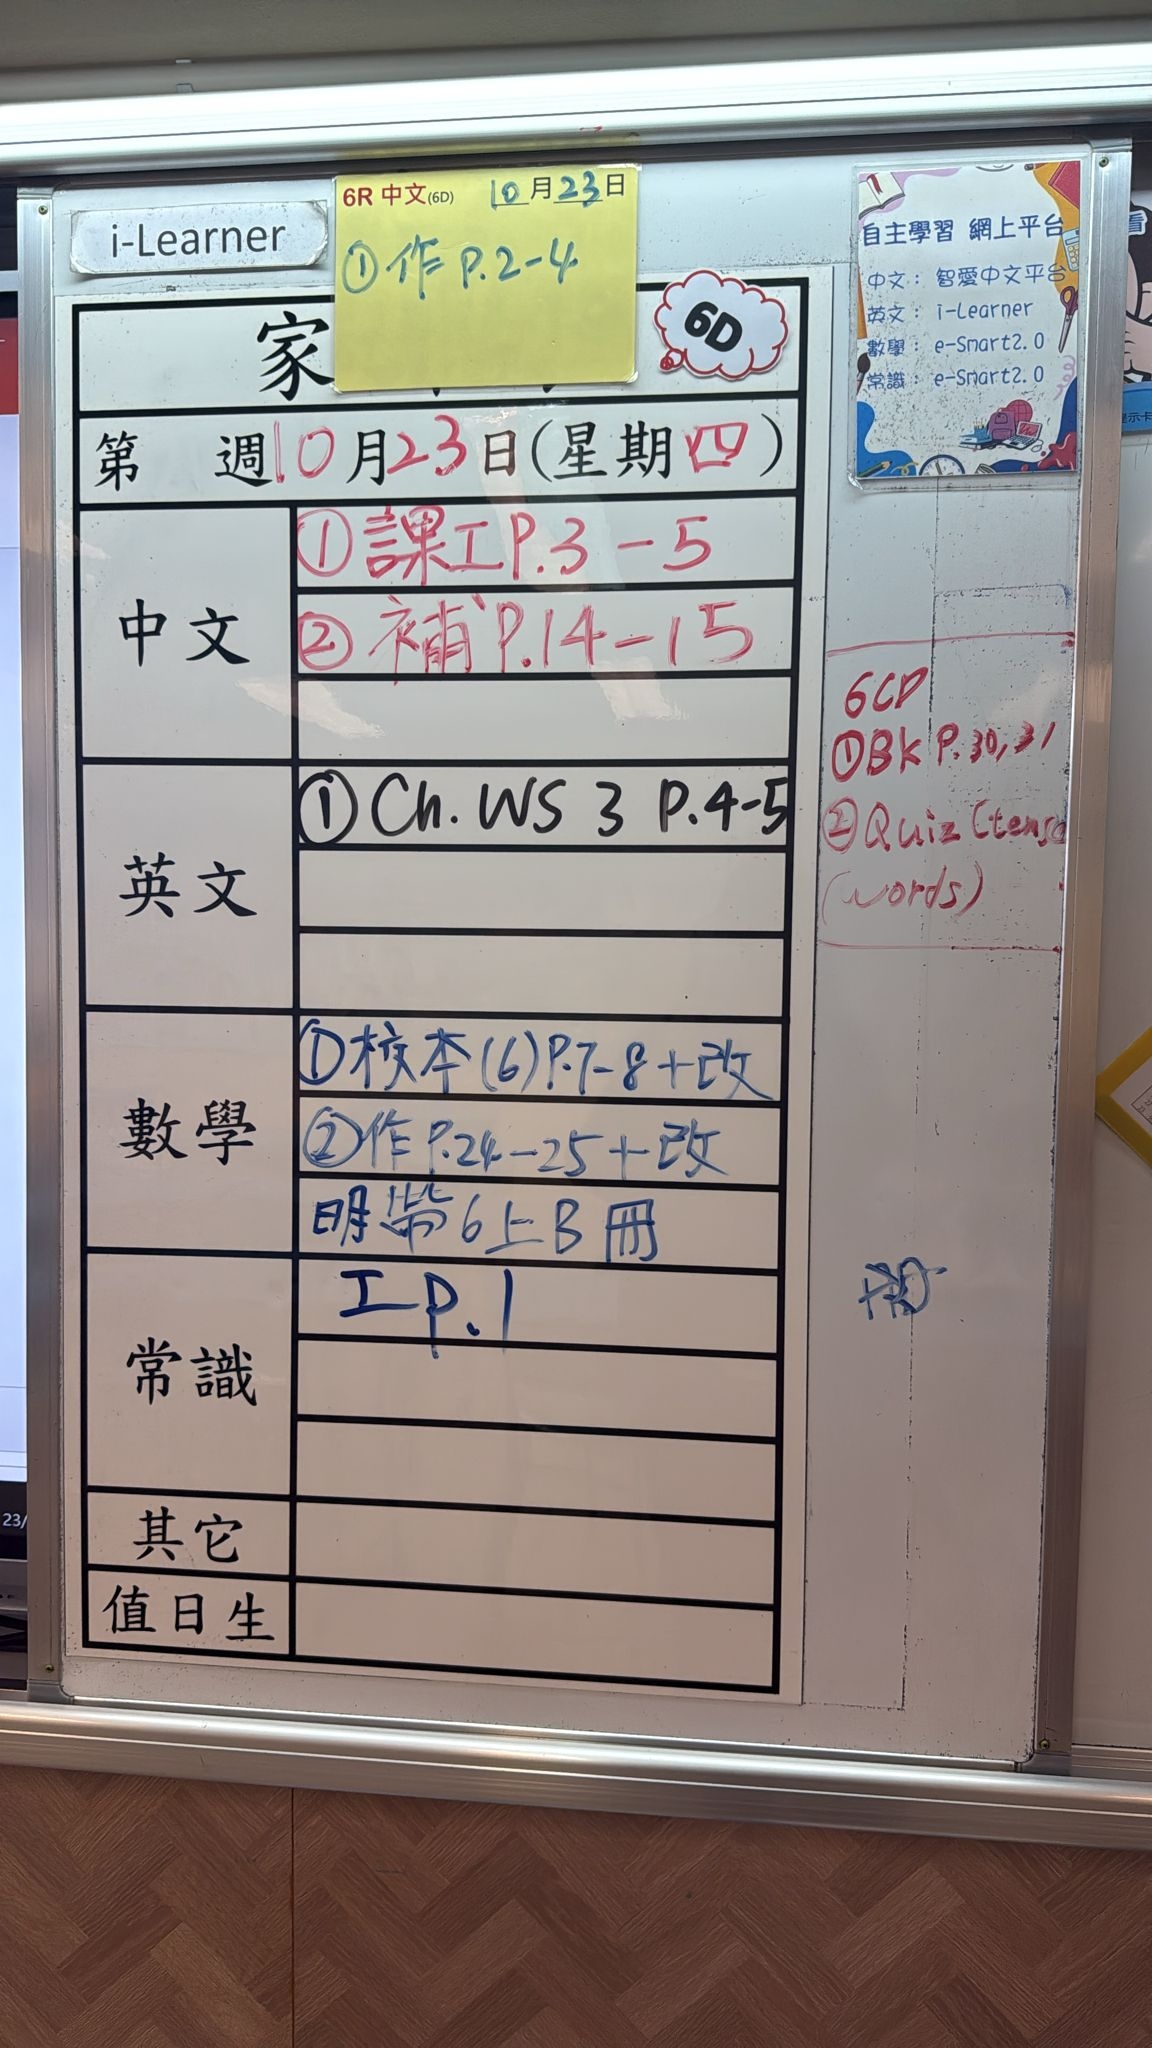 i-Learner
6R 中文(6D) 10月23日
①作 P.2-4
家
6D
第 週10月23日(星期四)
中文
①課工P.3-5
②補P.14-15
英文
①Ch. WS 3 P.4-5
數學
①校本(6)P.7-8+改
②作P.24-25+改
明帶6上B冊
常識
工P.1
其它
值日生
自主學習 網上平台
中文： 智愛中文平台
英文： i-Learner
數學： e-Smart2.0
常識： e-Smart2.0
6CD
①BK P.30,31
②Quiz (tense
(words)
看
提示卡
23/